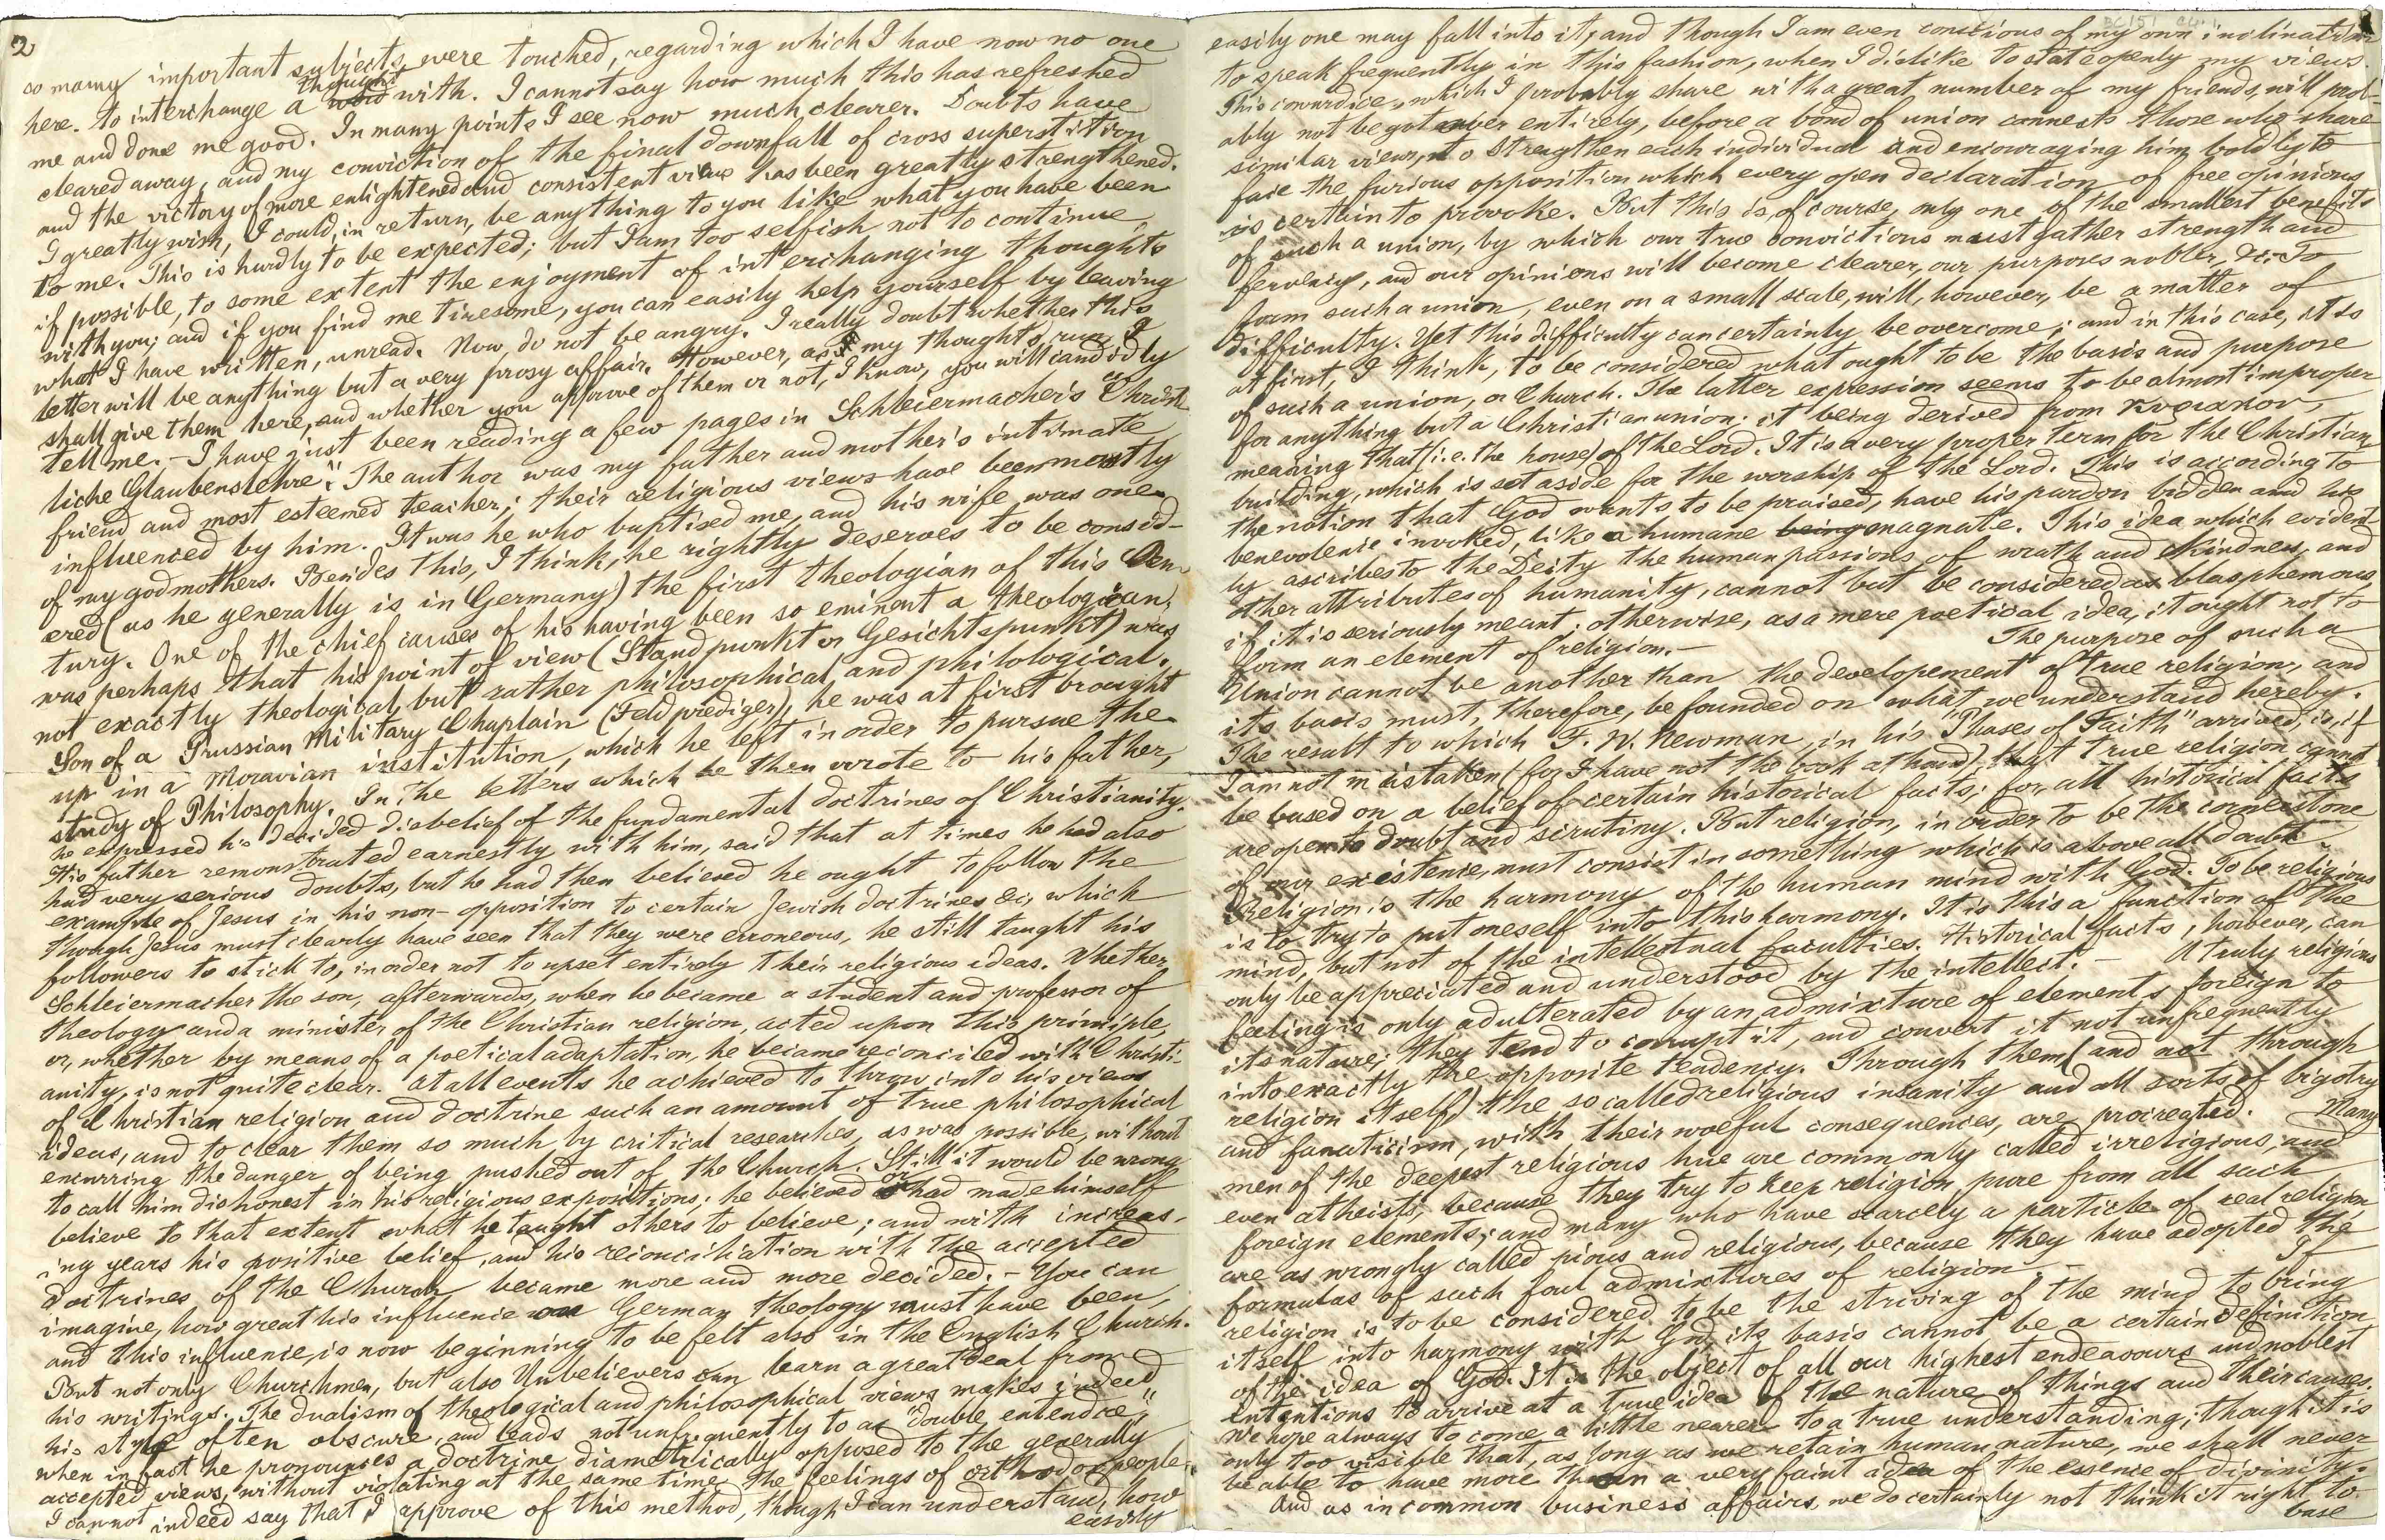 2
so many important subjects were touched, regarding which I have now no one
here. to interchange a thought with. I cannot say how much this has refreshed
me and done me good. In many points I see now much clearer. Doubts have
cleared away, and my conviction of the final downfall of cross superstition
and the victory of more enlightened and consistent views has been greatly strengthened.
I greatly wish, I could, in return, be anything to you like what you have been
to me. This is hardly to be expected; but I am too selfish not to continue,
if possible, to some extent the enjoyment of interchanging thoughts
with you; and if you find me tiresome, you can easily help yourself by leaving
what I have written, unread. Now, do not be angry. I really doubt whether this
letter will be anything but a very prosy affair. However, as my thoughts run, I
shall give them here, and whether you approve of them or not, I know, you will candidly
tell me. – I have just been reading a few pages in Schleiermacher's "Christ-
liche Glaubenslehre". The author was my father and mother's intimate
friend and most esteemed teacher; their religious views have been mostly
influenced by him. It was he who baptised me, and his wife was one
of my godmothers. Besides this, I think, he rightly deserves to be consid-
ered (as he generally is in Germany) the first theologian of this Cen-
tury. One of the chief causes of his having been so eminent a theologian,
was perhaps that his point of view (Standpunkt or Gesichtspunkt) was
not exactly theological, but rather philosophical and philological.
Son of a Prussian Military Chaplain (Feldprediger), he was at first brought
up in a Moravian institution, which he left in order to pursue the
study of Philosophy. In the letters which he then wrote to his father,
he expressed his decided disbelief of the fundamental doctrines of Christianity.
His father remonstrated earnestly with him, said that at times he had also
had very serious doubts, but he had then believed he ought to follow the
example of Jesus in his non-opposition to certain Jewish doctrines &c, which
though Jesus must clearly have seen that they were erroneous, he still taught his
followers to stick to, in order not to upset entirely their religious ideas. Whether
Schleiermacher the son, afterwards, when he became a student and professor of
theology and a minister of the Christian religion, acted upon this principle,
or, whether by means of a poetical adaptation, he became reconciled with Christi-
anity, is not quite clear. At all events he achieved to throw into his views
of Christian religion and doctrine such an amount of true philosophical
ideas, and to clear them so much by critical researches, as was possible, without
encurring the danger of being pushed out of the Church. Still it would be wrong
to call him dishonest in his religious expositions; he believed or had made himself
believe to that extent what he taught others to believe; and with increas-
ing years his positive belief, and his reconciliation with the accepted
doctrines of the Church became more and more decided. – You can
imagine, how great his influence on German theology must have been,
and this influence, is now beginning to be felt also in the English Church.
But not only Churchmen, but also Unbelievers can learn a great deal from
his writings. The dualism of theological and philosophical views makes indeed
his style often obscure, and leads not unfrequently to a "double entendre",
when in fact he pronounces a doctrine diametrically opposed to the generally
accepted views, without violating at the same time the feelings of orthodox people.
I cannot indeed say that I approve of this method, though I can understand, how
easily
easily one may fall into it, and though I am even conscious of my own inclination
to speak frequently in this fashion, when I dislike to state openly my views.
This cowardice, which I probably share with a great number of my friends, will prob-
ably not be got over entirely, before a bond of union connects those who share
similar views, to strengthen each individual and encouraging him boldly to
face the furious opposition which every open declaration of free opinions
is certain to provoke. But this is, of course, only one of the smallest benefits
of such a union, by which our true convictions must gather strength and
fervency, and our opinions will become clearer, our purposes nobler, &c. To
form such a union, even on a small scale, will, however, be a matter of
difficulty. Yet this difficulty can certainly be overcome; and in this case, it is
at first, I think, to be considered what ought to be the basis and purpose
of such a union, or Church. The latter expression seems to be almost improper
for anything but a Christian union; it being derived from κυριακον,
meaning that (i.e. the house) of the Lord. It is a very proper term for the Christian
building, which is set aside for the worship of the Lord. This is according to
the notion that God wants to be praised, have his pardon bidden and his
benevolence invoked, like a humane being magnate. This idea which evident-
ly ascribes to the Deity the human passions of wrath and kindness, and
other attributes of humanity, cannot but be considered as blasphemous,
if it is seriously meant; otherwise, as a mere poetical idea, it ought not to
form an element of religion. – The purpose of such a
Union cannot be another than the developement of true religion, and
its basis must, therefore, be founded on what we understand hereby.
The result to which F. W. Newman in his "Phases of Faith" arrived, is, if
I am not mistaken (for I have not the book at hand), that true religion cannot
be based on a belief of certain historical facts; for all historical facts
are open to doubt and scrutiny. But religion, in order to be the cornerstone
of our existence, must consist in something which is above all doubt.
Religion is the harmony of the human mind with God. To be religious
is to try to put oneself into this harmony. It is this a function of the
mind, but not of the intellectual faculties. Historical facts, however, can
only be appreciated and understood by the intellect. – A truly religious
feeling is only adulterated by an admixture of elements foreign to
its nature; they tend to corrupt it, and convert it not unfrequently
into exactly the opposite tendency. Through them (and not through
religion itself) the so called religious insanity and all sorts of bigotry
and fanaticism, with their woeful consequences, are procreated. Many
men of the deepest religious hue are commonly called irreligious, and
even atheists, because they try to keep religion pure from all such
foreign elements; and many who have scarcely a particle of real religion
are as wrongly called pious and religious, because they have adopted the
formulas of such foul admixtures of religion. – If
religion is to be considered to be the striving of the mind to bring
itself into harmony with God, its basis cannot be a certain definition
of the idea of God. It is the object of all our highest endeavours and noblest
intentions to arrive at a true idea of the nature of things and their causes.
We hope always to come a little nearer to a true understanding; though it is
only too visible that, as long as we retain human nature, we shall never
be able to have more than a very faint idea of the essence of divinity.
And as in common business affairs, we do certainly not think it right to
base